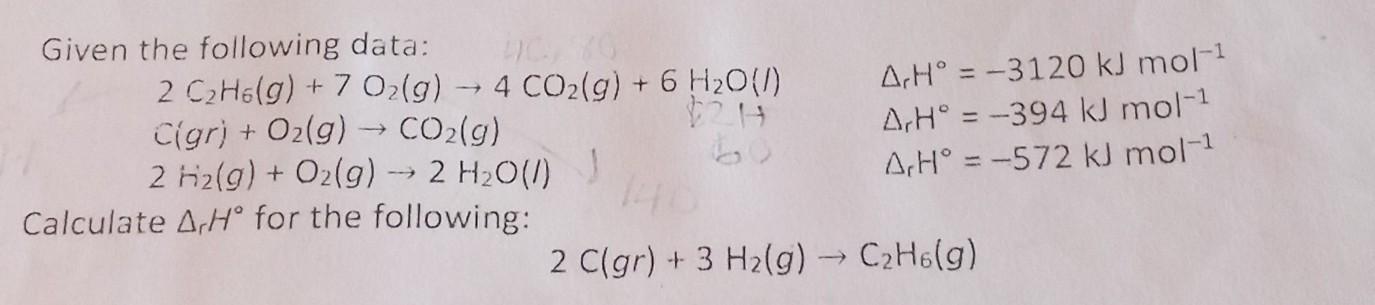 Given the following data:
2 C₂H₆(g) + 7 O₂(g) → 4 CO₂(g) + 6 H₂O(l) ΔᵣH° = −3120 kJ mol⁻¹
C(gr) + O₂(g) → CO₂(g) ΔᵣH° = −394 kJ mol⁻¹
2 H₂(g) + O₂(g) → 2 H₂O(l) ΔᵣH° = −572 kJ mol⁻¹
Calculate ΔᵣH° for the following:
2 C(gr) + 3 H₂(g) → C₂H₆(g)